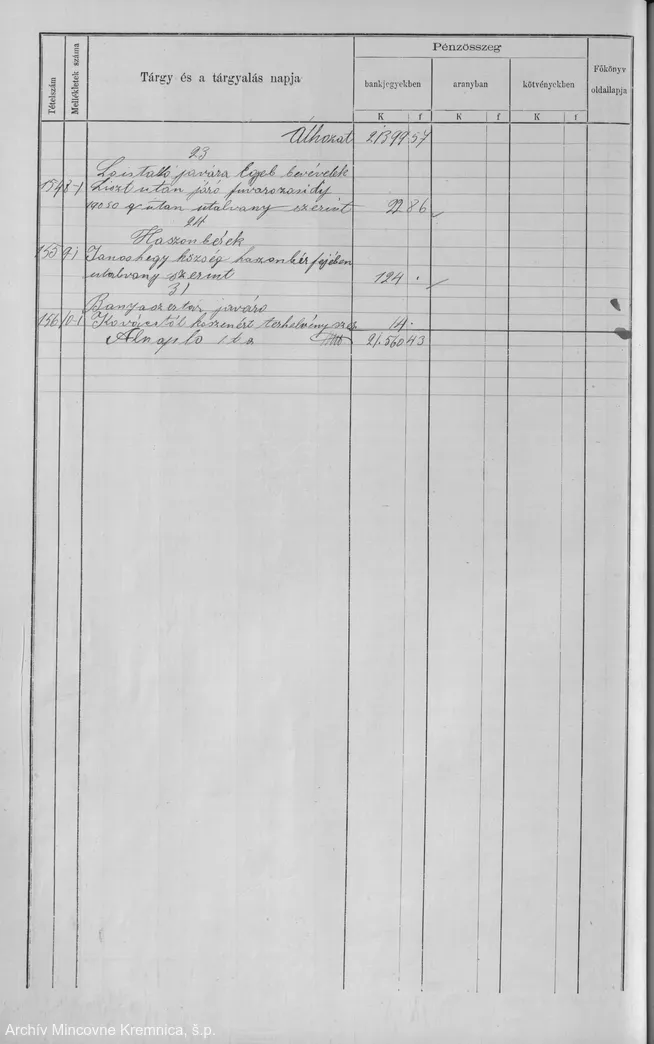 Tételszám
Mellékletek száma
Tárgy és a tárgyalás napja
Pénzösszeg
bankjegyekben
aranyban
kötvényekben
Főkönyv
oldallapja
K f K f K f
Áthozat 21399 57
23
javára Egyéb bevételek
154 8-1 Liszt után járó fuvarozási díj
után utalvany szerint 22 86
24
Haszonbérek
155 9-1 Janoshegy község haszonbér fejében
utalvany szerint 124 .
31
javára
156 10-1 Kovácstól terhelvény 14 .
Alnapló 21.560 43
Archív Mincovne Kremnica, š.p.